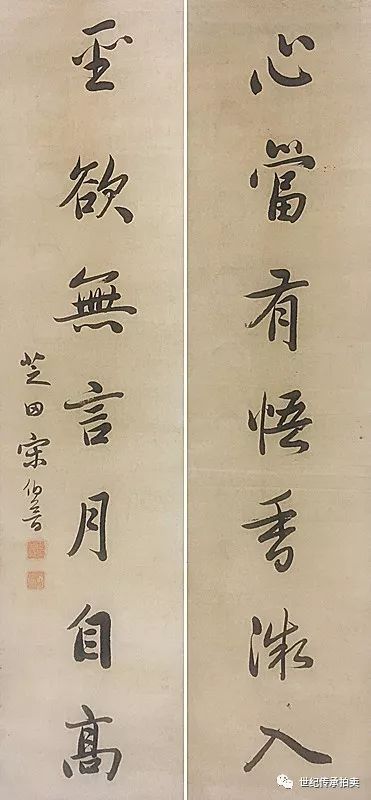 心當有悟香微入
坐欲無言月自高
芝田宋伯魯
世纪传承拍卖